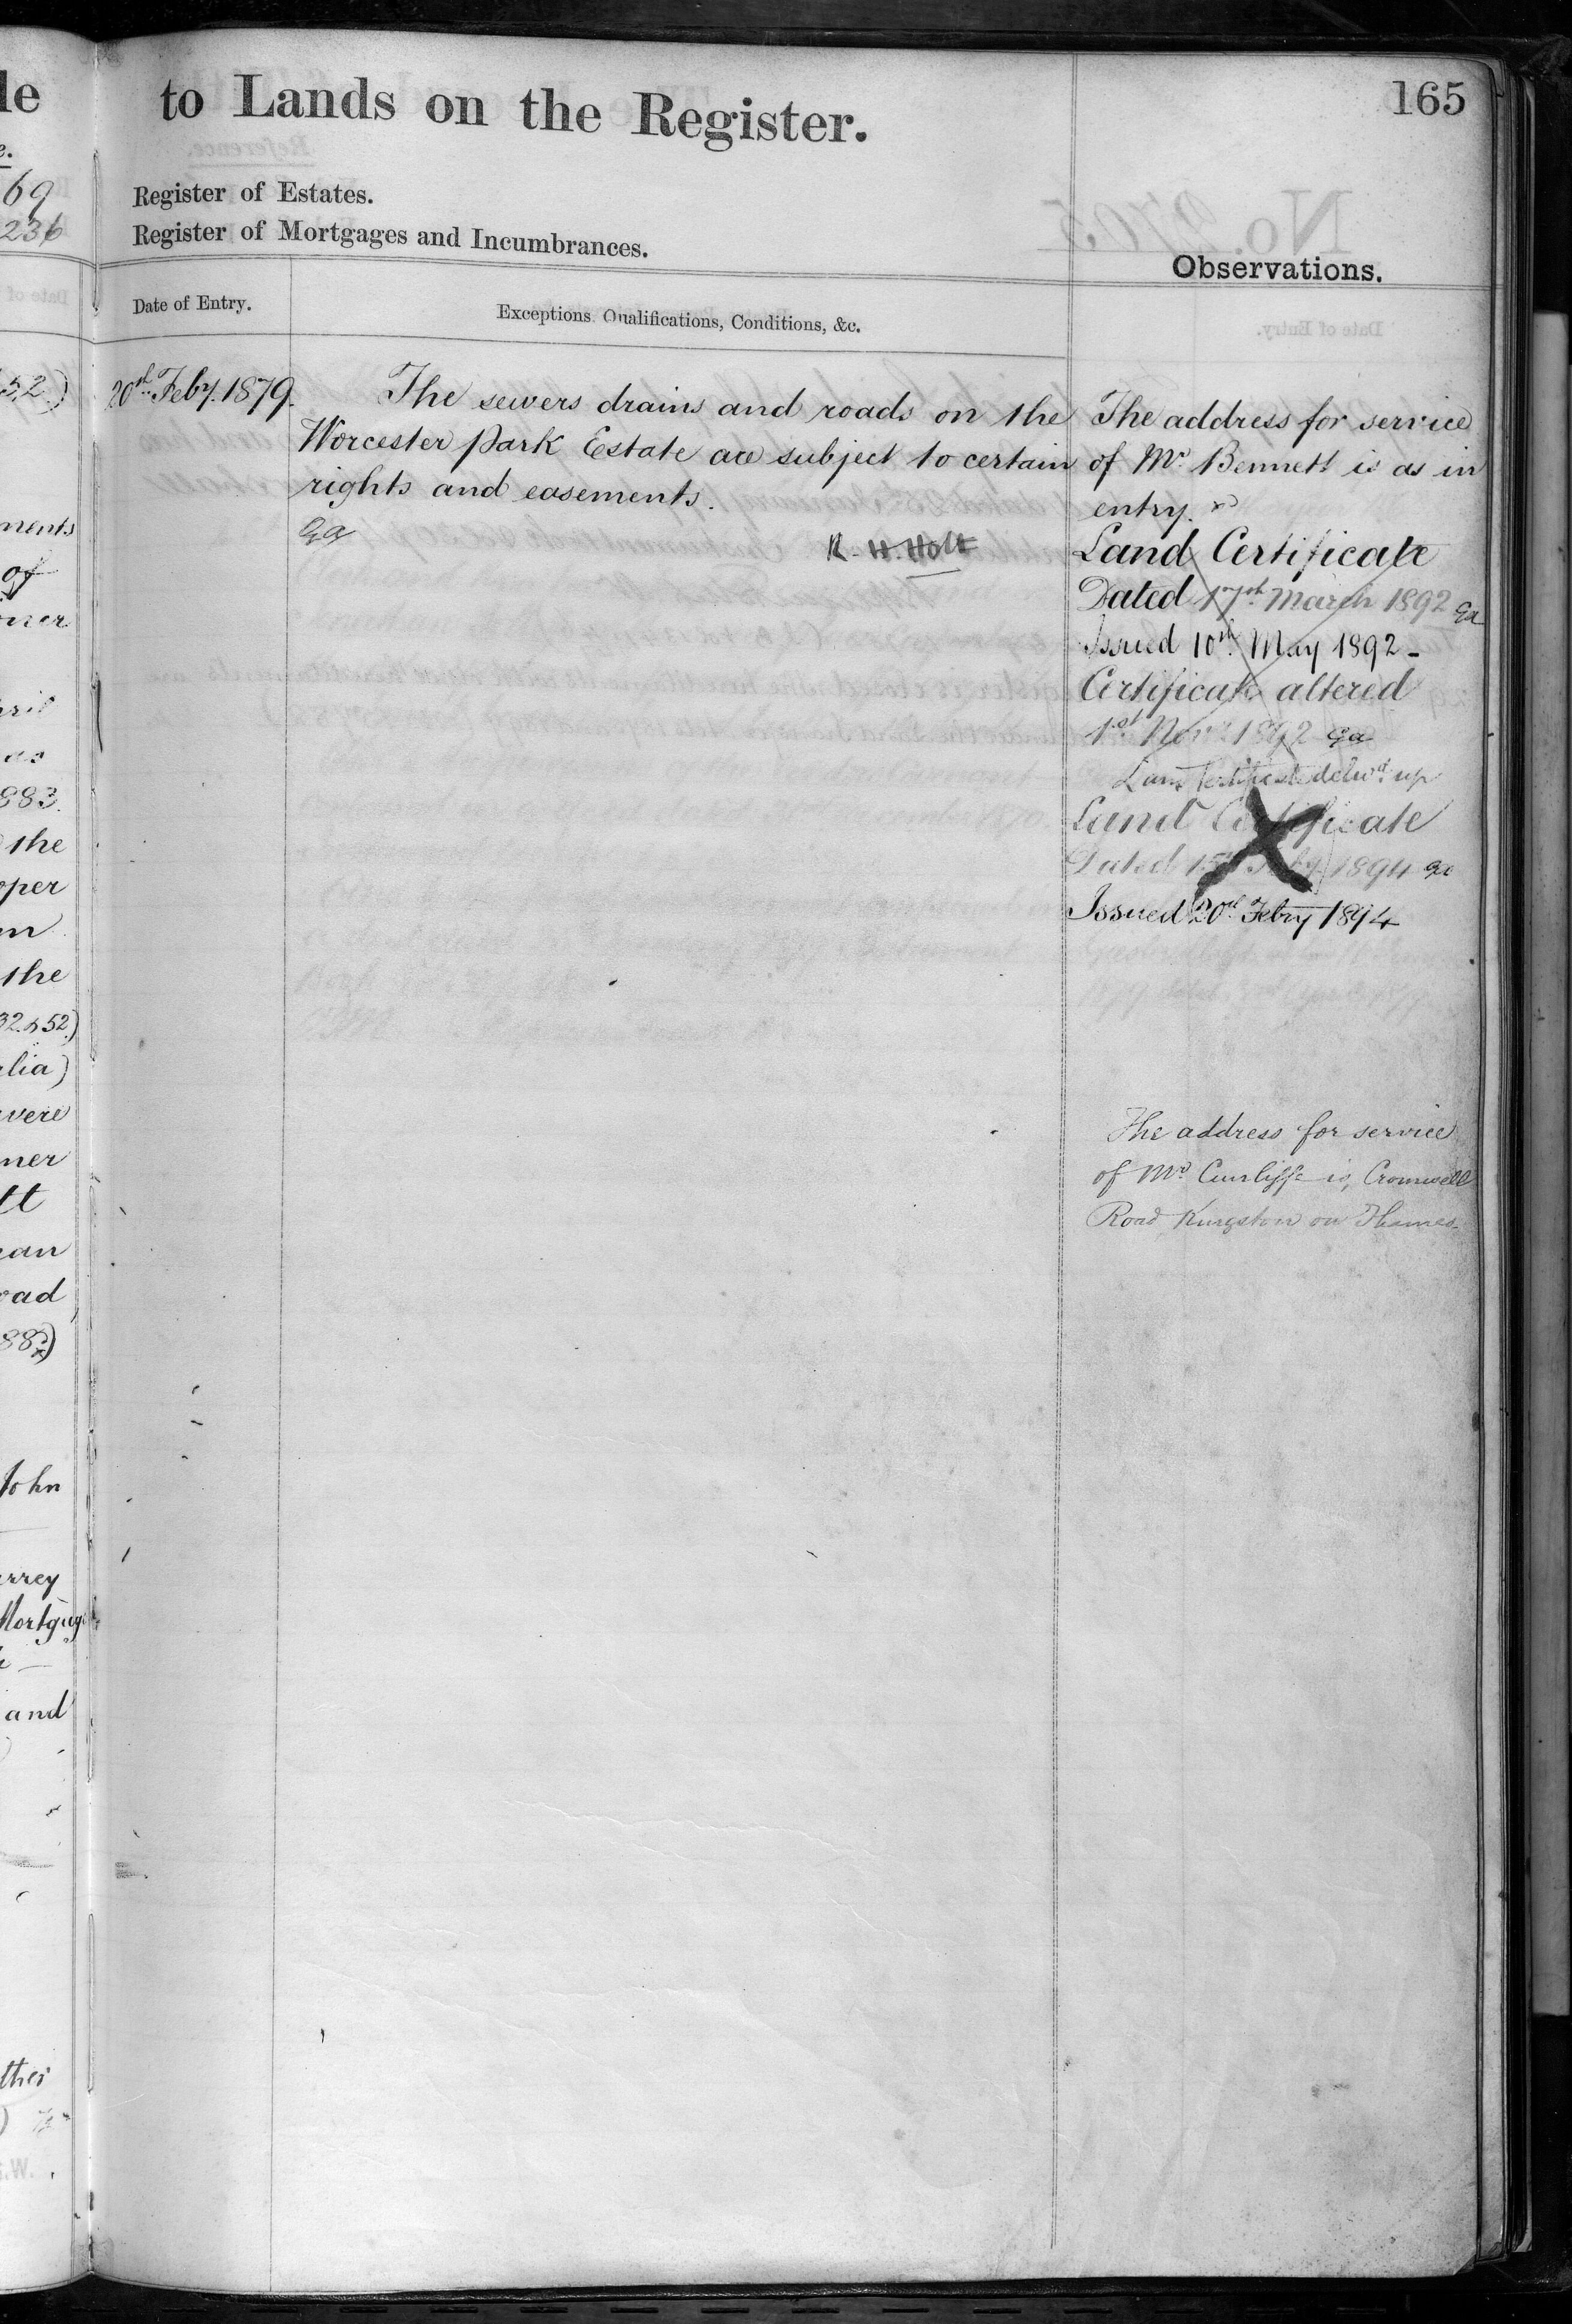 le
to Lands on the Register.
165
e.
69
236
Register of Estates.
Register of Mortgages and Incumbrances.
Observations.
Date of Entry.
Exceptions, Qualifications, Conditions, &c.
52)
20th Feby. 1879.
The sewers drains and roads on the
Worcester Park Estate are subject to certain
rights and easements.
R. H. Holt
The address for service
of Mr. Bennett is as in
entry.
Land Certificate
Dated 17th March 1892
Issued 10th May 1892 -
Certificate altered
1st Novr 1892
Land Certificate delivd. up
Land Certificate
Dated 15th Feby 1894
Issued 20th Febry 1894
The address for service
of Mr. Cunliffe is, Cromwell
Road Kingston on Thames.
ments
of
ner
ril
as
883.
the
oper
m
the
32.&52.)
lia)
were
ner
tt
ean
oad,
John
urrey
Mortgage
and
ther